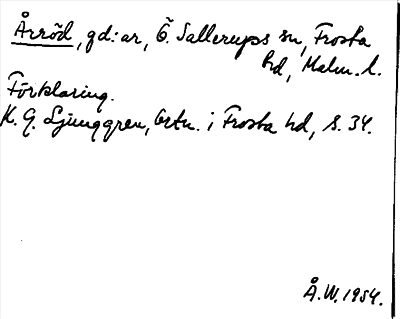 Årröd, gd:ar, Ö. Sallerups sn, Frosta
hd, Malm. l.
Förklaring.
K. G. Ljunggren, Ortn. i Frosta hd, s. 34.
Å. W. 1954.